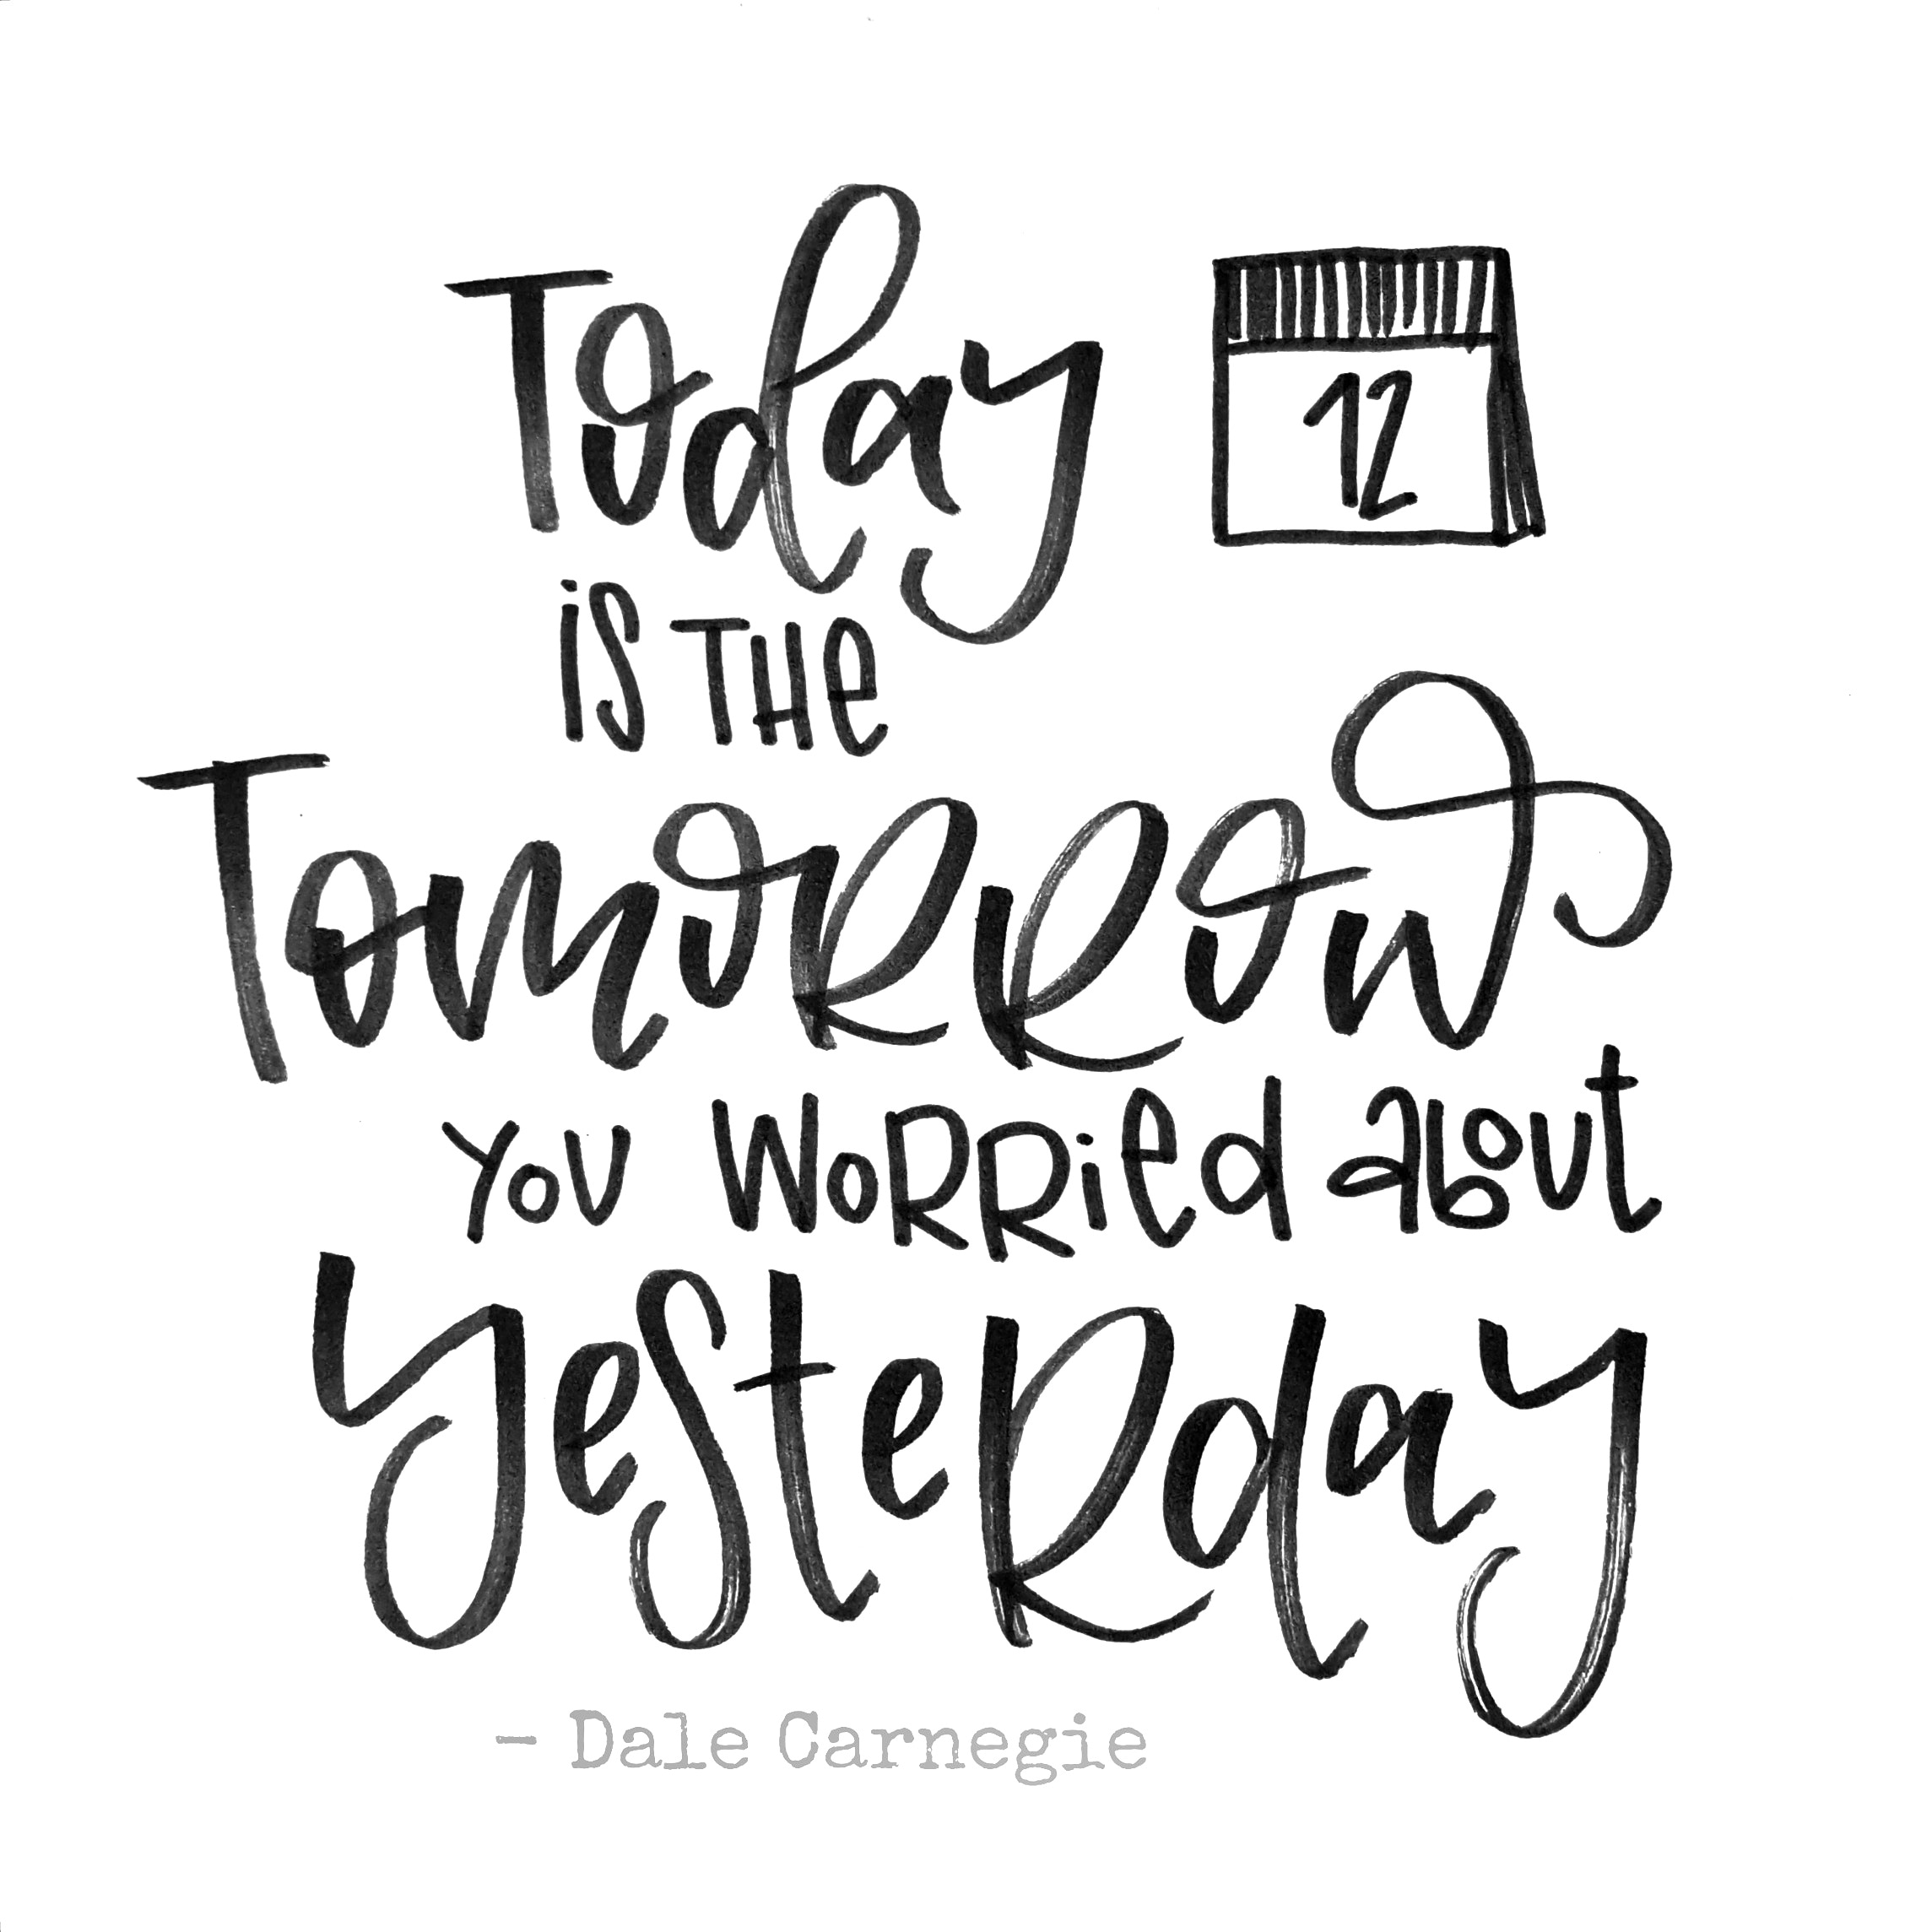 Today
12
is THe
TomoRRow
you woRRied about
yesteRday
– Dale Carnegie